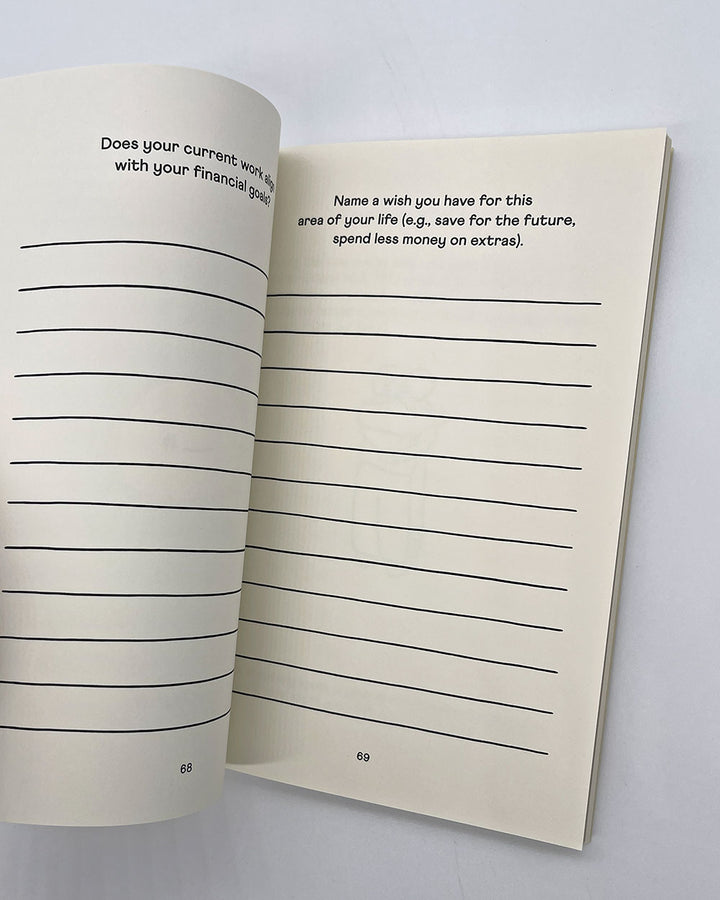 Does your current work align
with your financial goals?
68
Name a wish you have for this
area of your life (e.g., save for the future,
spend less money on extras).
69